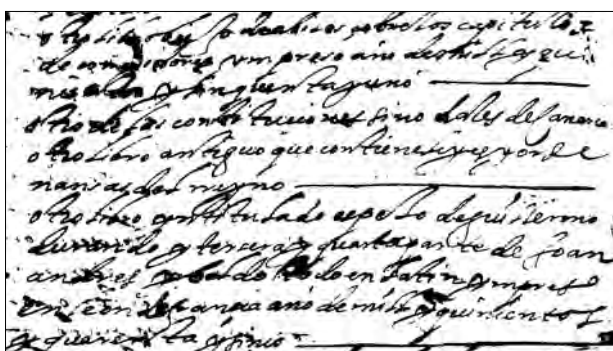 otro libro de abisos sobre los capitulos
de corregidores ympreso año de mill y qui
nientos y cinquenta y uno
otro de las constituciones sinodales de
otro libro antiguo que contiene leyes y orde
nansas del reyno
otro libro yntitulado espejo de guillermo
durando y tercera y quarta parte de joan
andres y baldo todo en latin ympreso
en leon de francia año de mill y quinientos
y quarenta y sinco